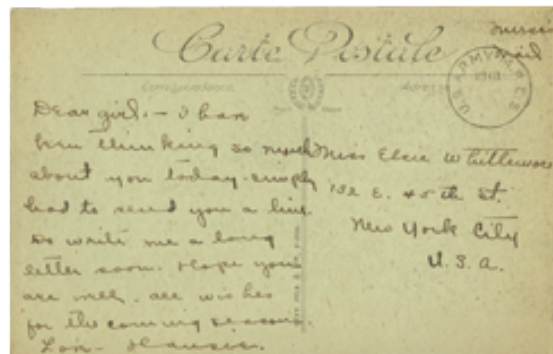 Carte Postale
Correspondance
Adresse
Mail
U.S. ARMY M.P.E.S.
Dear girl:- I have
been thinking so much
about you today - simply
had to send you a line
Do write me a long
letter soon. Hope you
are well. All wishes
for the coming season.
Miss Elsie Whittemore
132 E. 45th St.
New York City
U.S.A.